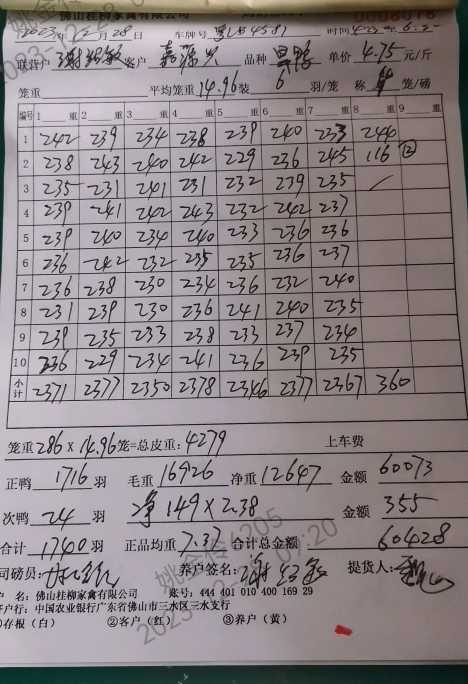 佛山桂柳家禽有限公司
2023年12月28日 车牌号 时间
联营户 客户 嘉源兴 品种 单价 4.75 元/斤
笼重 平均笼重 14.96 装 6 羽/笼 称 笼/磅
编号 1 重 2 重 3 重 4 重 5 重 6 重 7 重 8 重 9 重
1 242 239 234 238 239 240 233 244
2 238 243 240 242 229 236 245 116 ②
3 235 231 241 231 232 239 235
4 239 241 242 243 232 242 237
5 239 240 234 240 233 236 236
6 236 242 232 235 235 236 237
7 236 238 230 234 236 232 240
8 231 239 230 236 241 240 235
9 239 235 233 238 233 237 234
10 236 229 234 241 236 239 235
小计 2371 2377 2350 2378 2346 2377 2367 360
笼重 286 × 14.96 笼=总皮重: 4279 上车费
正鸭 1716 羽 毛重 16926 净重 12647 金额 60073
次鸭 24 羽 净 149 × 2.38 金额 355
合计 1740 羽 正品均重 7.37 合计总金额 60428
司磅员: 养户签名: 提货人:
户 名: 佛山桂柳家禽有限公司 账号: 444 401 010 400 169 29
开户行: 中国农业银行广东省佛山市三水区三水支行
①存根(白) ②客户(红) ③养户(黄)